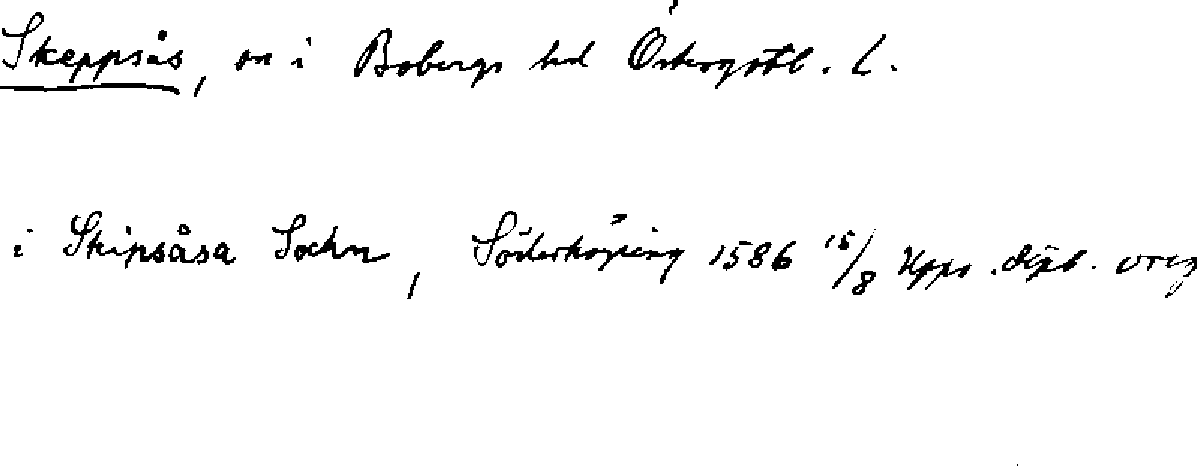 Skeppsås, sn i Bobergs hd Östergötl. L.
i Skipsåsa Sochn, Söderköping 1586 15/8 Upps. dipl. orig